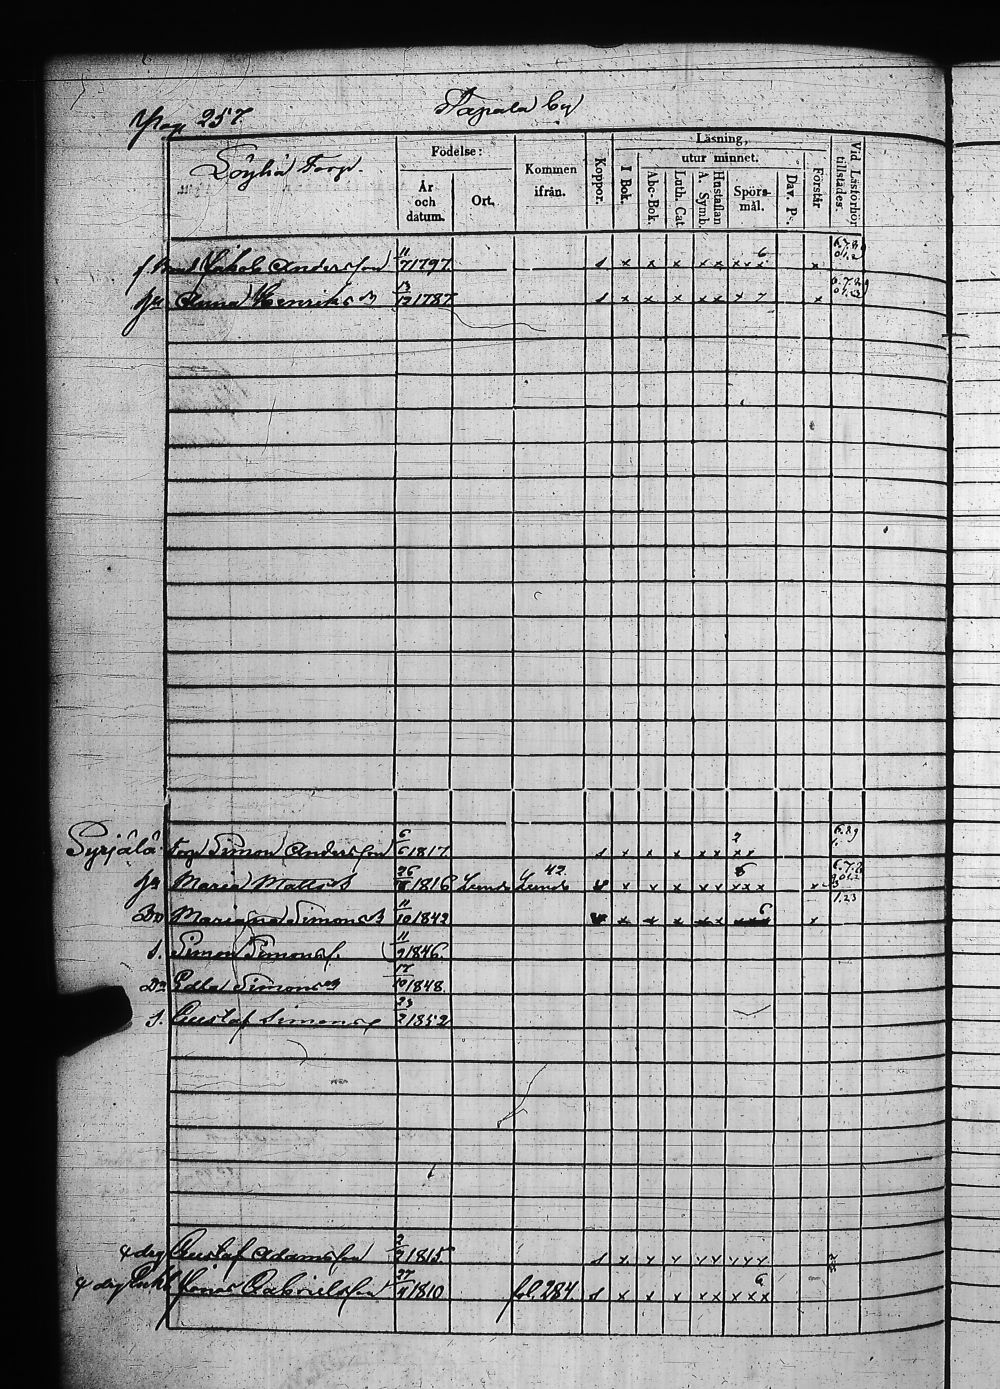 Pag 257. Tapala by
Löyliä Torp.
Födelse:
År och datum.
Ort.
Kommen ifrån.
Koppor.
Läsning,
utur minnet.
I Bok.
Abc-Bok.
Luth. Cat.
Hustaflan A. Symb.
Spörsmål.
Dav. Ps.
Förstår
Vid Läsförhör tillstädes.
Jakob Andersson 11/7 1797. s x x x x x x x x 6 x
Anna Henriks 13/12 1787. s x x x x x x 7 x
Syrjälä Torp Simon Andersson 6/6 1817. s x x x x x x x 2
Maria Matts 26/ 1816 Lundo Lundo 42. x x x x x x x x 6 x
Simons 11/10 1842 x x x x x x x x 6 x
S. Simon Simonss. 11/9 1846.
Dr Edla Simons 17/10 1848.
S. Gustaf Simonss 23/2 1852
Gustaf Adamsson 2/2 1815. s x x x x x x x x
Enkl. Jonas Gabrielsson 27/ 1810 fol. 284. s x x x x x x x x 6